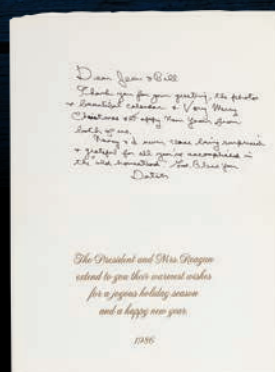 Dear Jean & Bill
Thank you for your greeting, the photos
& beautiful calendar & Very Merry
Christmas & Happy New Year from
both of us.
Nancy & I never cease being surprised
& grateful for all you've accomplished in
the "old hometown" God Bless you
Dutch
The President and Mrs. Reagan
extend to you their warmest wishes
for a joyous holiday season
and a happy new year
1986